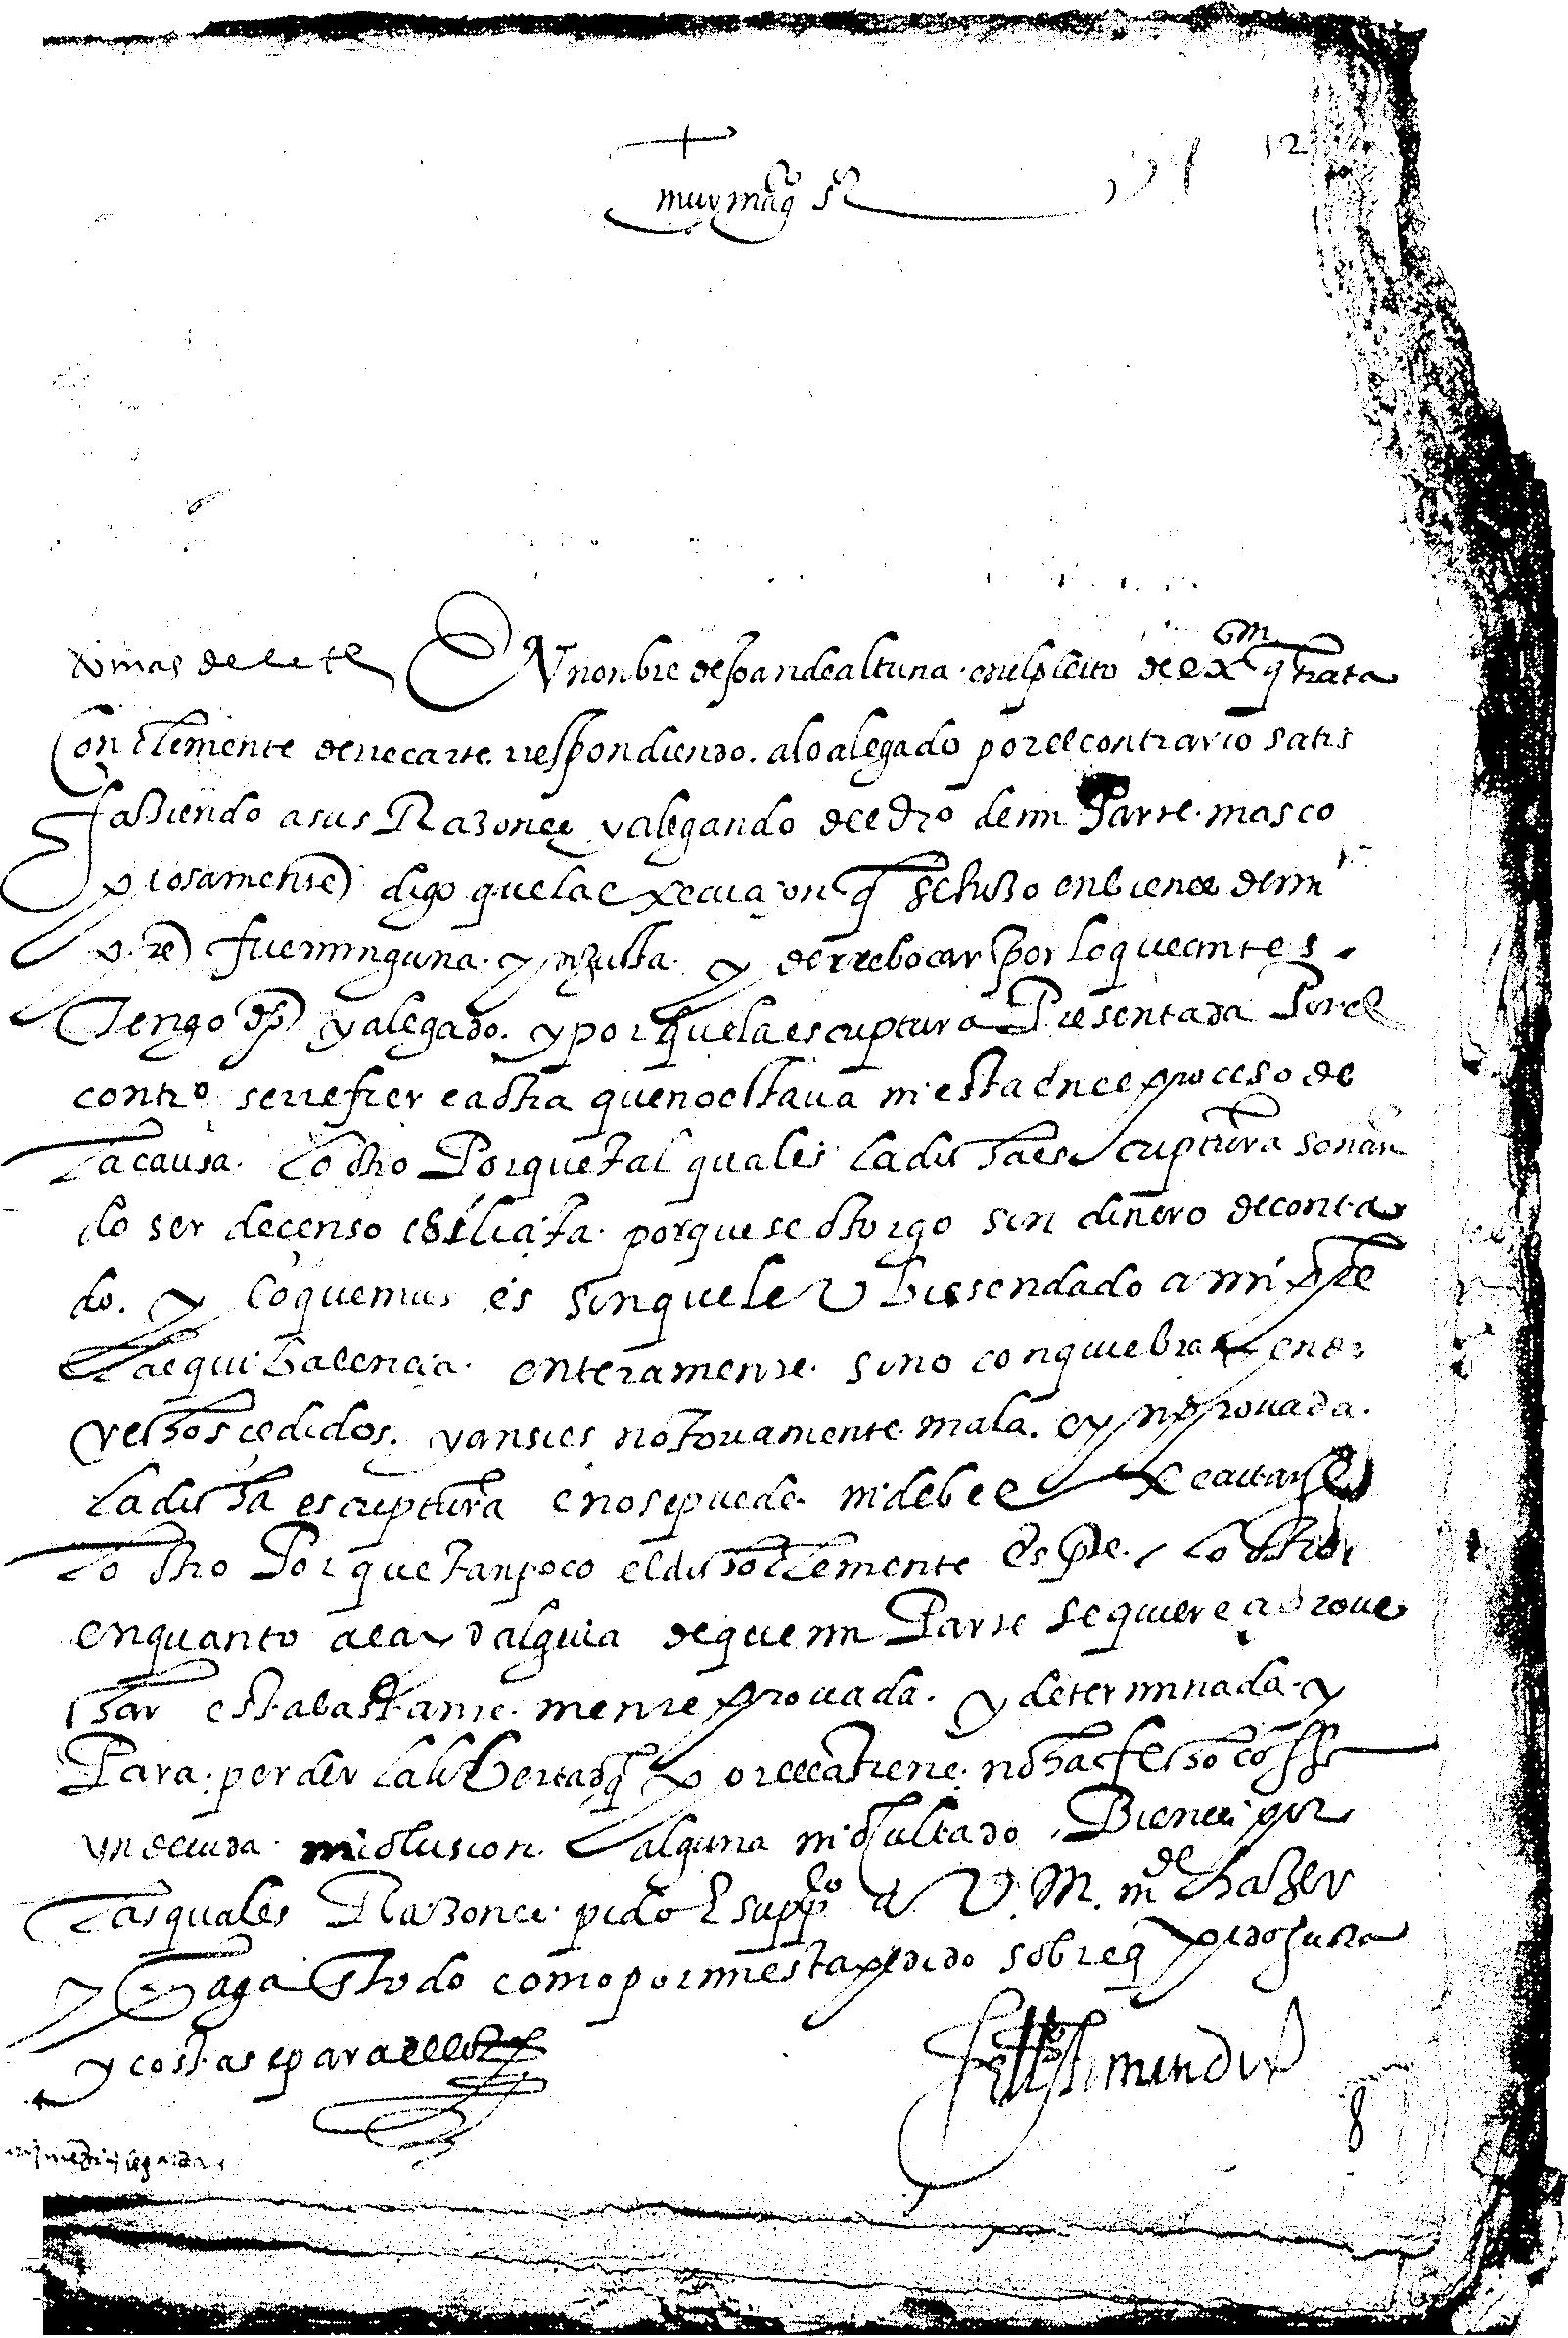 muy mag.co s.r
12
En nonbre de Joan de altuna. en el pleito de ex.on q̃ trata
Con clemente de rrecarte. rrespondiendo. alo alegado por el contrario satis
faziendo a sus Razones y alegando del dr.o de mi Parte. mas co
piosamente digo que la execucion q̃ se hizo en bienes de mi
p.te fue ninguna. y injusta. y de rrebocar por lo que antes
Tengo d.ho y alegado. y por que la escriptura Presentada Por el
contr.o se rrefiere a otra que no estava ni esta en el proceso de
la causa. Lo otro Porque tal qual es la dicha escriptura sonan
do ser de censo es iliçita. porque se otorgo sin dinero de conta
do. y lo que mas es sin que le Ubiesen dado a mi p.te
la equibalencia. enteramente. sino con quiebra en de
rechos cedidos. y ansi es notoriamente mala. e ynprouada.
la dicha escriptura e no se puede. ni debe executarse
Lo otro Por que tanpoco el dicho clemente es p.te. Lo otro
en quanto a la ydalguia de que mi Parte se quiere aproue
char esta bastante mente prouada. y determinada. y
Para. perder la libertad q̃ por ella tiene. no ha fecho cossa
yndeuida. ni colusion alguna ni ocultado Bienes por
Las quales Razones. pido E supp.co a V. M. m.de hazer
y haga En todo como por mi esta pedido sobre q̃ pido justa
y costas e para ello etc.
8